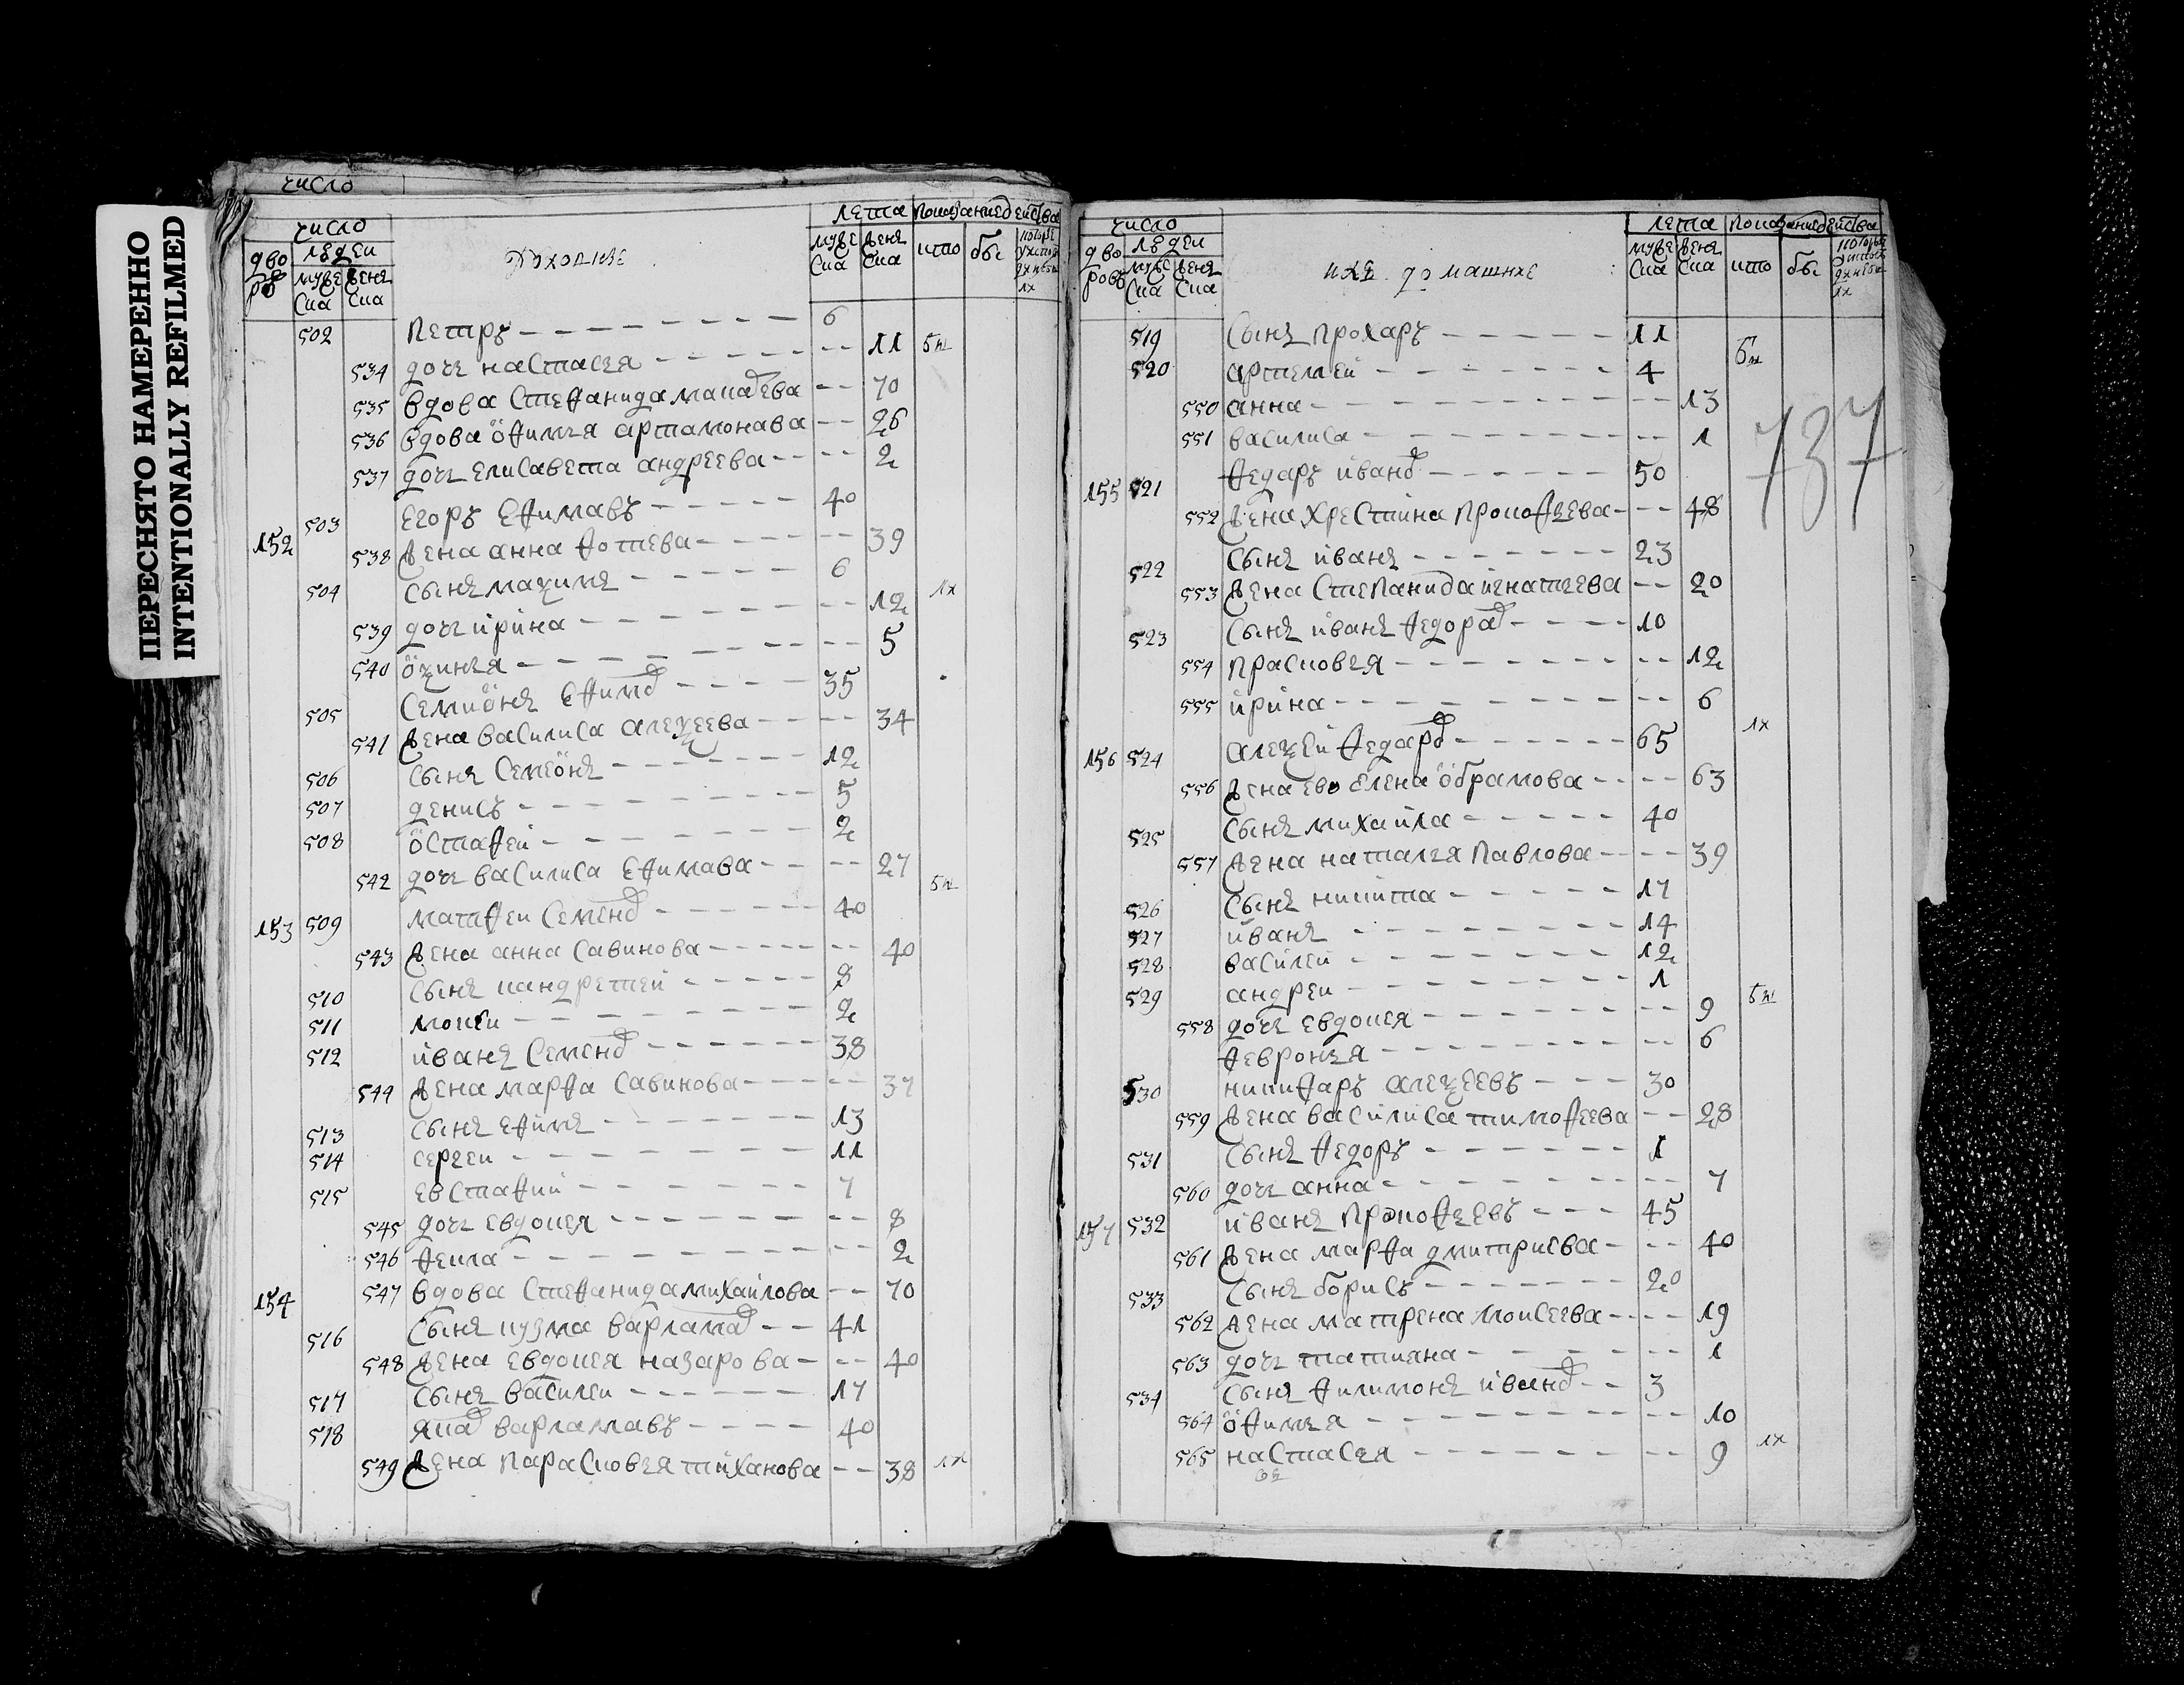 ПЕРЕСНЯТО НАМЕРЕННО
INTENTIONALLY REFILMED
число
число
лета
дво
людеи
муже
женс
что
бы
ровъ
муже
женс
ска
ска
ска
ска
502 Петръ 6
534 дочь настасья 11
535 вдова стефанида 70
536 вдова ӧфимья артамонава 26
537 дочь елисавета андреева 2
503 егоръ ефимавъ 40
152
538 жена анна фотева 39
504 сынъ маѯимъ 6
539 дочь ирина 12
540 ӧѯинья 5
505 семиӧнъ ефимо 35
541 жена василиса алеѯеева 34
506 сынъ семеӧнъ 12
507 денисъ 5
508 ӧстафеи 2
542 дочь василиса ефимава 27
153 509 матфеи семено 40
543 жена анна савинова 40
510 сынъ кандретеи 8
511 мокеи 2
512 иванъ семено 38
544 жена марфа савинова 37
513 сынъ ефимъ 13
514 сергеи 11
515 евстафии 7
545 дочь евдокея 8
546 фекла 2
154 547 вдова стефанида михаилова 70
516 сынъ кузма варламо 41
548 жена евдокея назарова 40
517 сынъ василеи 17
518 яко варламавъ 40
549 жена парасковья тиханова 38
число
лета
дво
людеи
муже
женс
что
бы
ровъ
муже
женс
ихъ домашние
ска
ска
ска
ска
519 сынъ прохаръ 11
520 артемеи 4
550 анна 13
551 василиса 1
737
155 521 федаръ ивано 50
552 жена христина прокофьева 48
522 сынъ иванъ 23
553 жена степанида игнатьева 20
523 сынъ иванъ федоро 10
554 прасковья 12
555 ирина 6
156 524 алеѯеи федаро 65
556 жена ево елена ӧбрамова 63
525 сынъ михаила 40
557 жена наталья павлова 39
526 сынъ никита 17
527 иванъ 14
528 василеи 12
529 андреи 1
558 дочь евдокея 9
февронья 6
530 никифаръ алеѯеевъ 30
559 жена василиса тимофеева 28
531 сынъ федоръ 1
560 дочь анна 7
157 532 иванъ прокофьевъ 45
561 жена марфа дмитриева 40
533 сынъ борисъ 20
562 жена матрена моисеева 19
563 дочь татиана 1
534 сынъ филимонъ ивано 3
564 ӧфимья 10
565 настасья 9